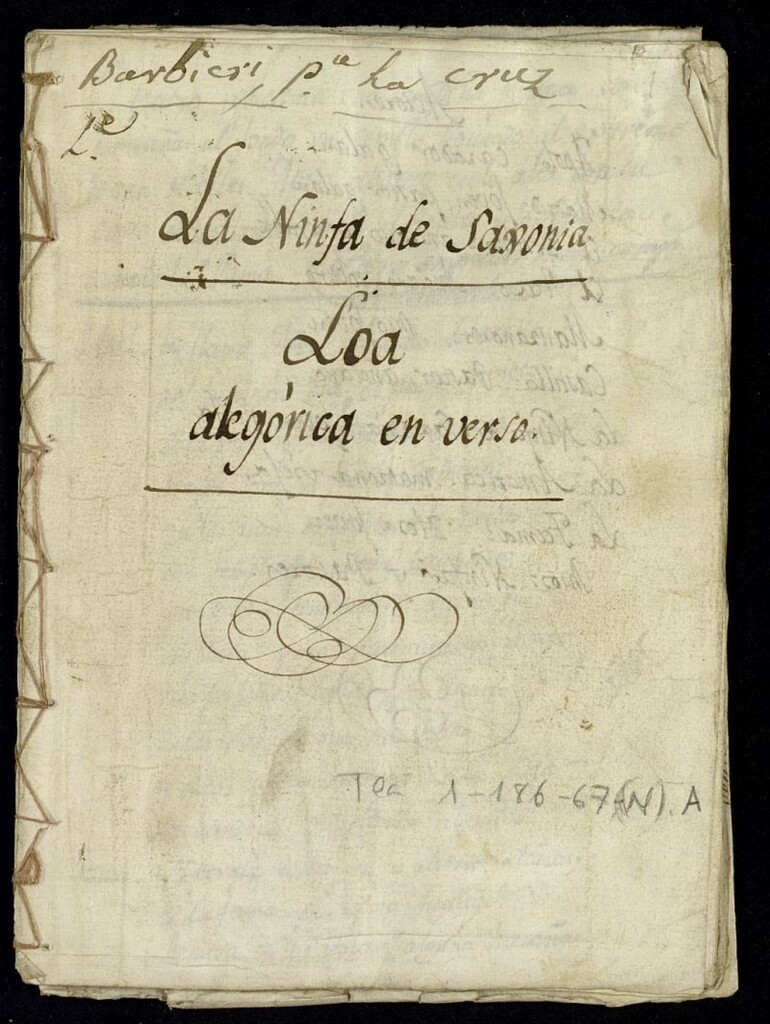 Barbieri, p.ª La cruz
L.º
La Ninfa de Saxonia
Loa
alegórica en verso.
Tea 1-186-67(N). A